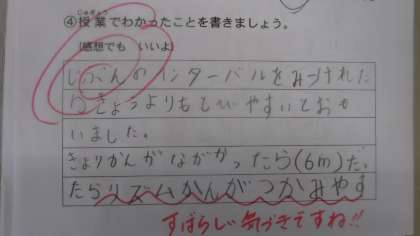 じゅぎょう
④授業でわかったことを書きましょう。
(感想でも いいよ)
じぶんのインターバルをみつけれた
らきょうよりもとびやすいとおも
いました。
きょりかんがながかったら(6m)だ。
たらリズムかんがつかみやす
すばらしい気づきですね!!